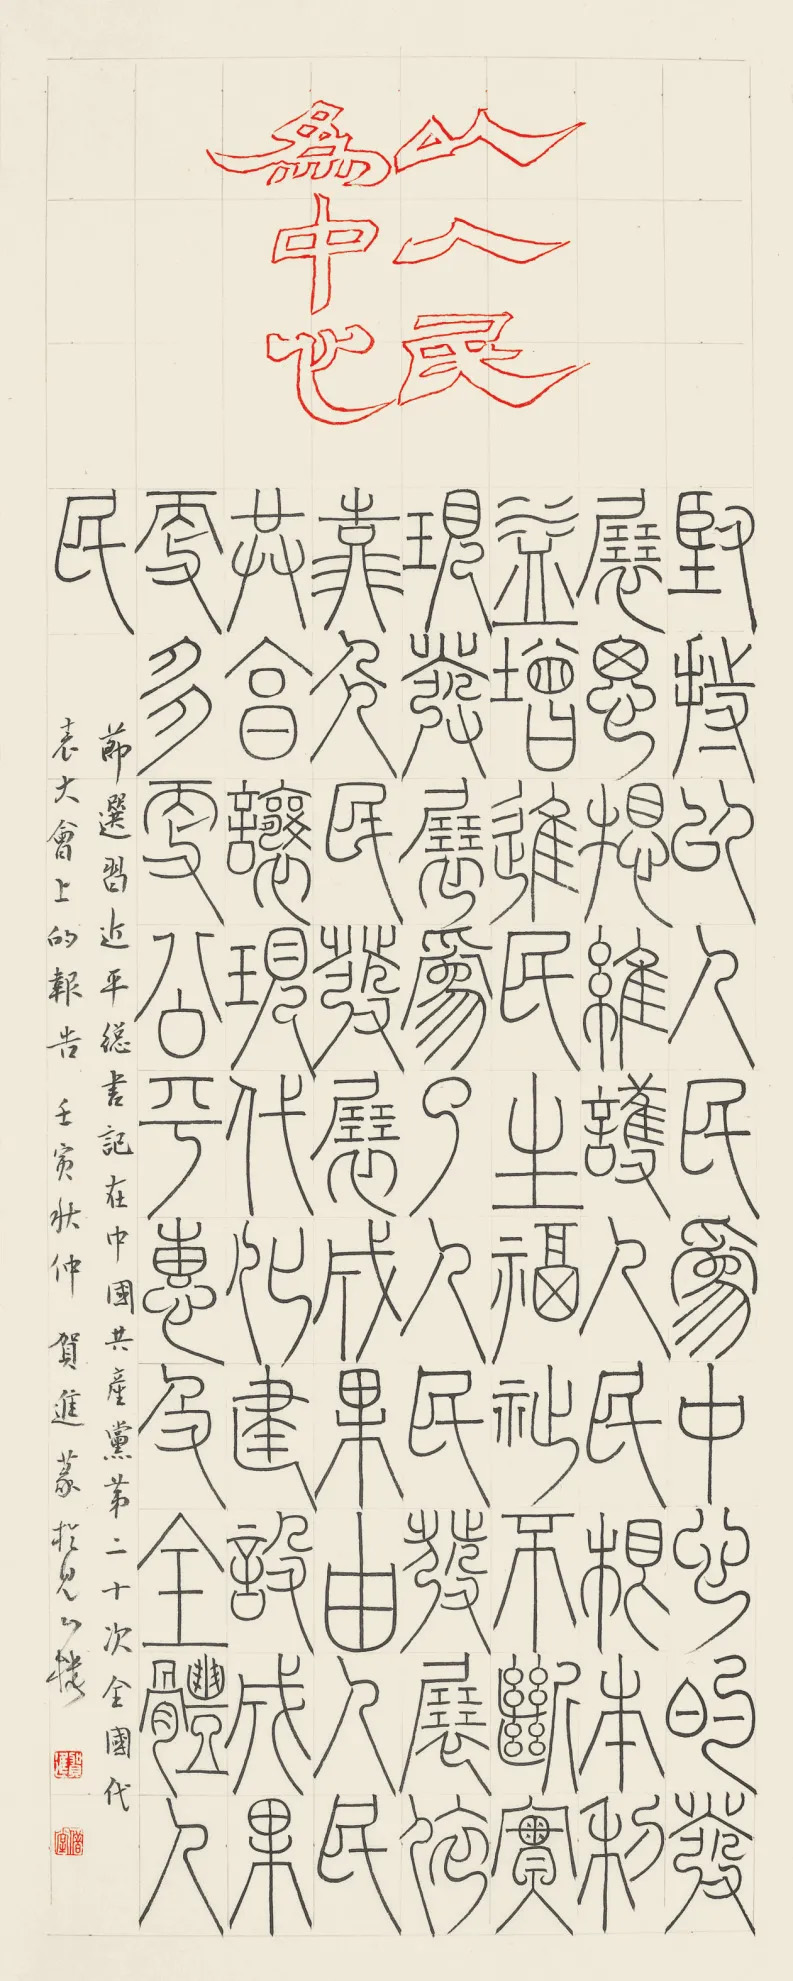 以人民
為中心
堅持以人民為中心的發
展思想維護人民根本利
益增進民生福祉不斷實
現發展為了人民發展依
靠人民發展成果由人民
共享讓現代化建設成果
更多更公平惠及全體人
民
節選習近平總書記在中國共產黨第二十次全國代
表大會上的報告 壬寅秋仲 賀進篆於見樓
賀進